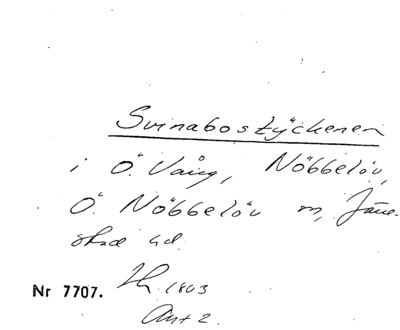 Svinabostÿckenen
i Ö. Vång, Nöbbelöv,
Ö. Nöbbelöv sn, Järre-
stad hd.
Nr 7707. 1803
Akt 2.